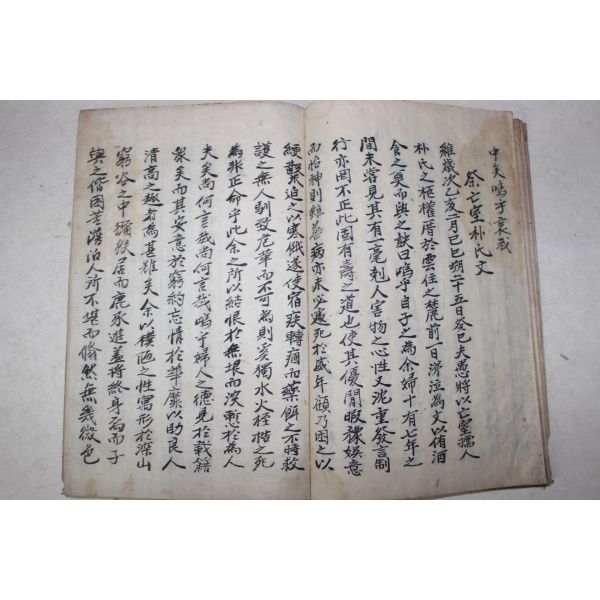 中矣嗚乎哀哉
祭亡室朴氏文
維歲次乙亥二月己巳朔二十五日癸巳夫愚將以亡室孺人
朴氏之柩權厝於雲住之麓前一日涕泣為文以侑酒
食之奠而與之訣曰嗚乎自子之為余婦十有七年之
間未嘗見其有一毫剋人害物之心性又沈重發言制
行亦罔不正此固有壽之道也使其優閒暇豫娛意
而怡神則雖善病亦未必遽死於盛年顧乃困之以
經艱迫之以寒餓遂使宿疾轉痼而藥餌之不時救
護之無人馴致危革而不可為則奚獨水火桎梏之死
為非正命乎此余之所以結恨於無垠而深慙於為人
夫矣尚何言哉尚何言哉嗚乎婦人之德見於載籍
衆矣而其安意於窮約忘情於華靡以助良人
清高之趣者為甚難矣余以樸陋之性寓形於深山
窮谷之中獼猴居而鹿豕遊蓋將終身焉而子
與之偕困苦澹泊人所不堪而翛然無幾微色